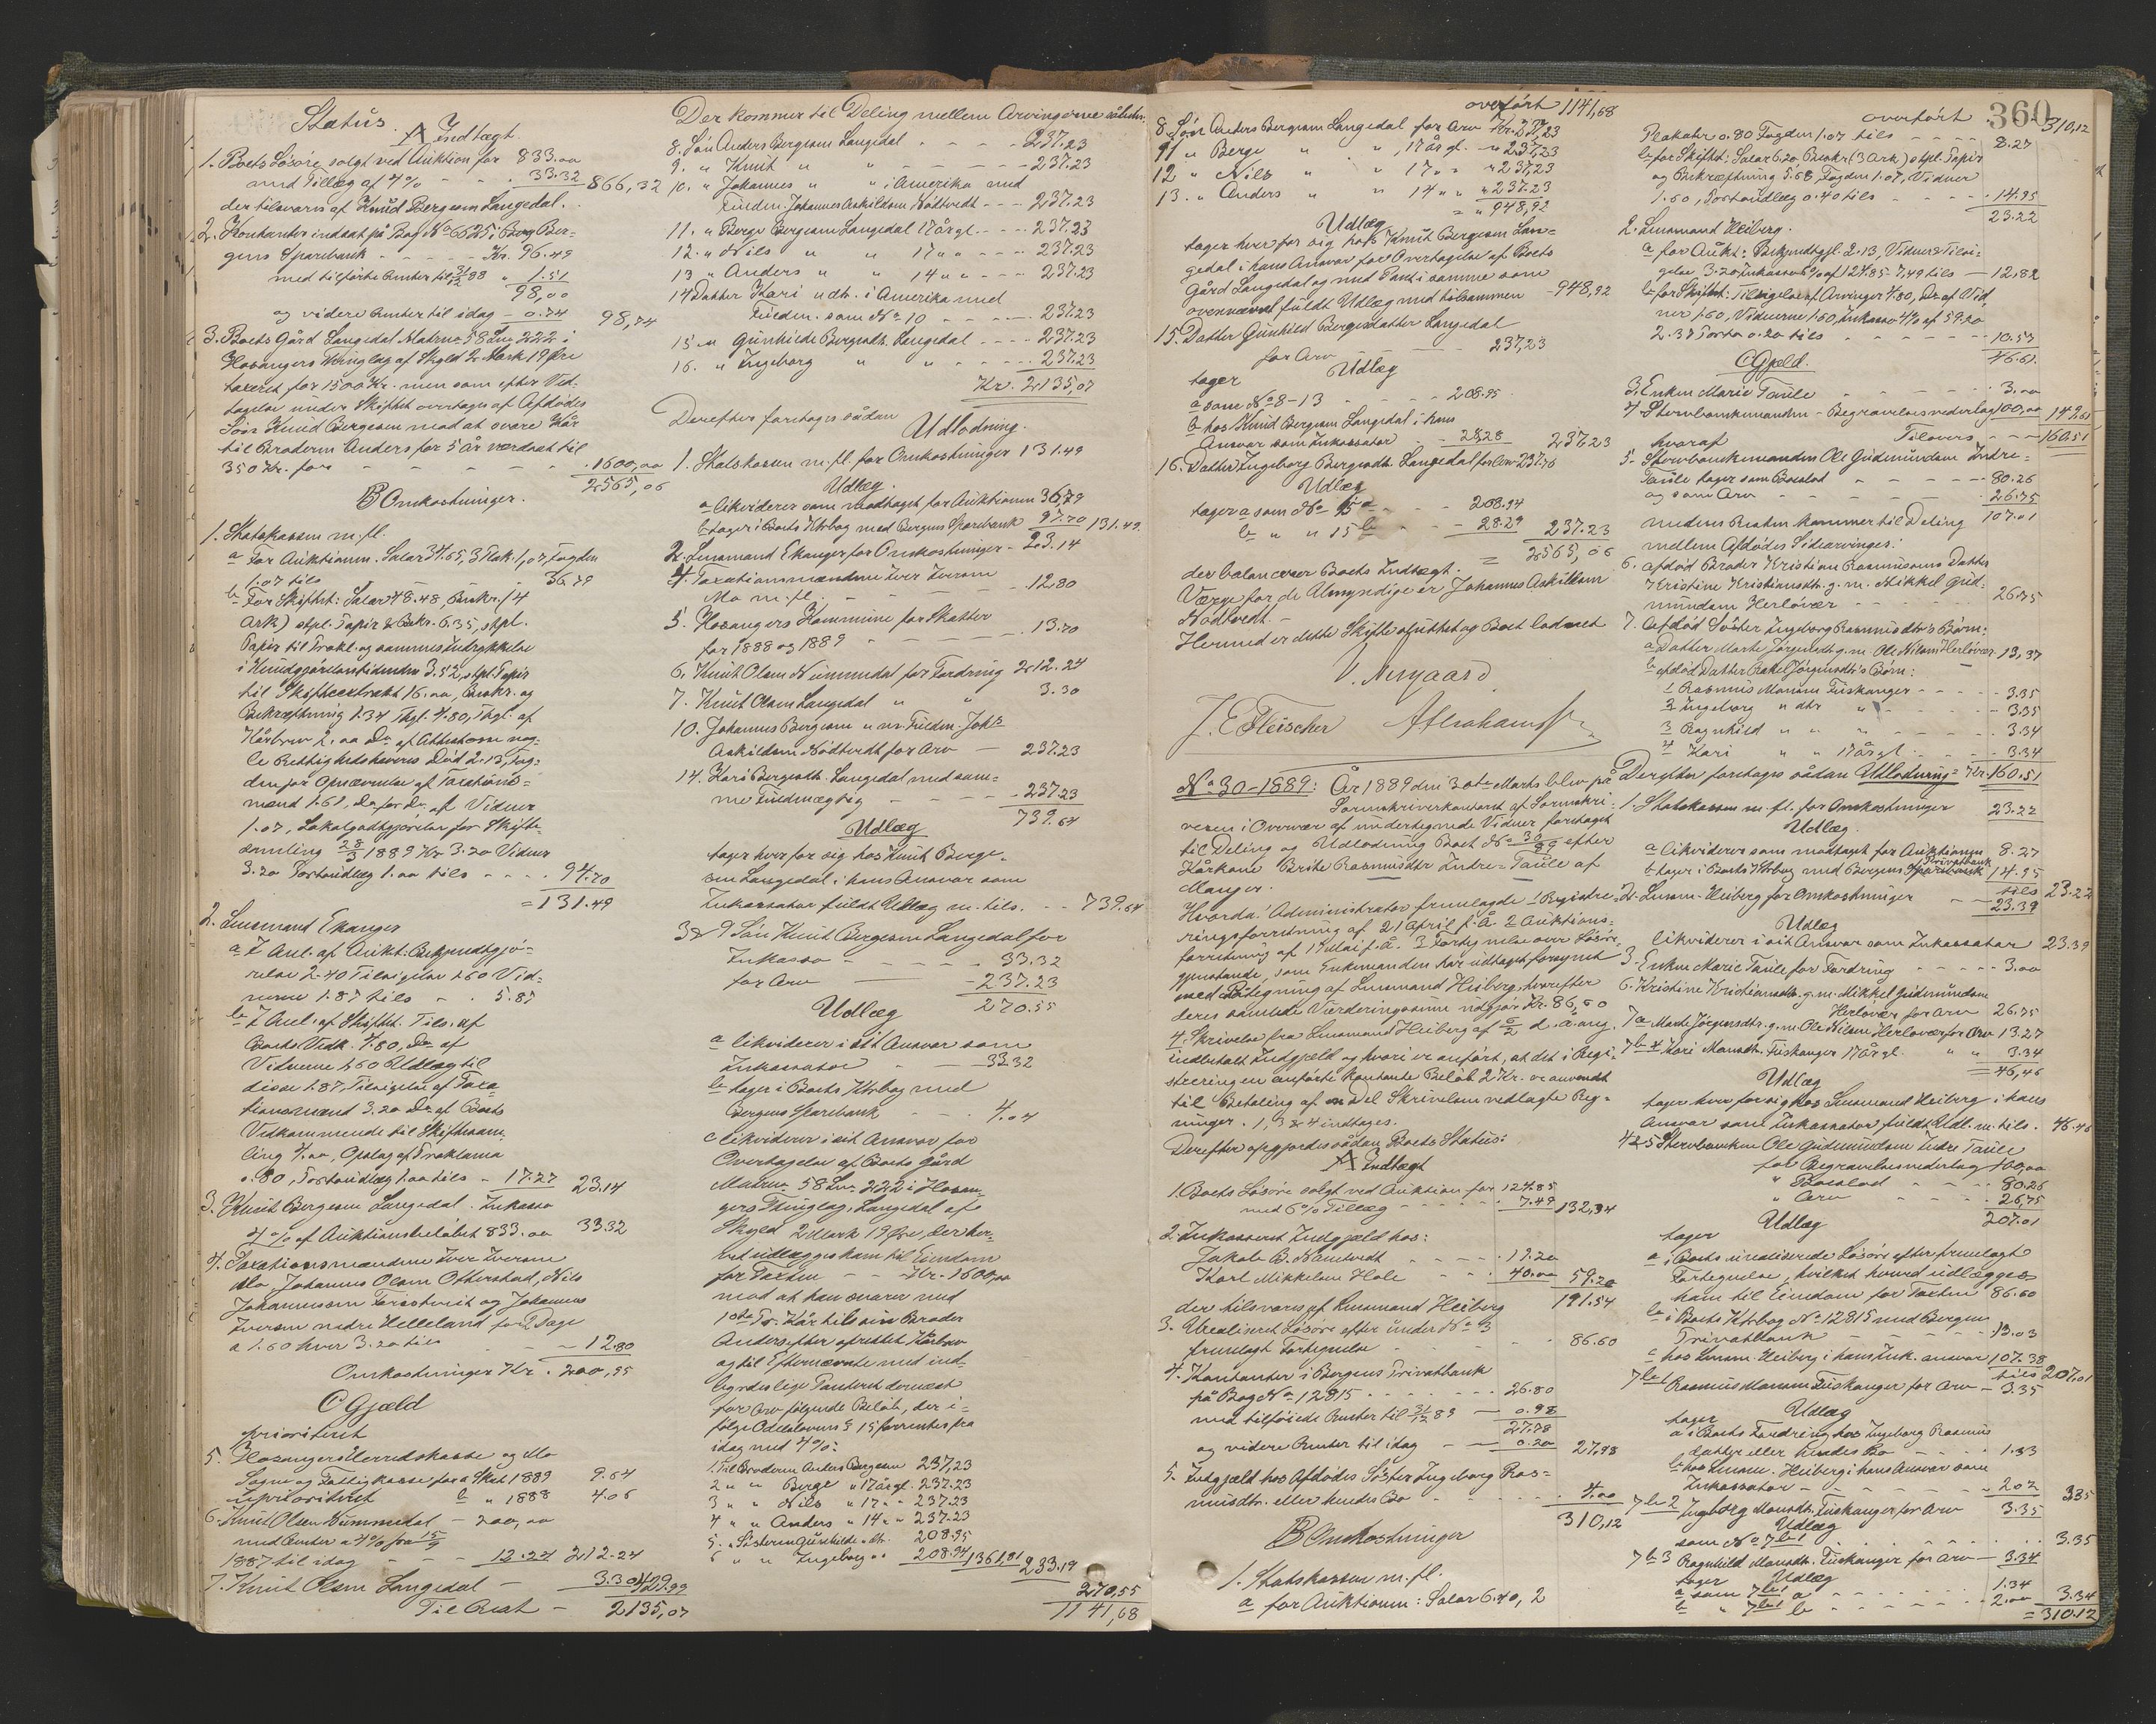 Status.
A Indtægt.
1. Boets Løsöre solgt ved Auktion for 833.00
med Tillæg af 4% - - - 33.32 866,32
der tilsvares af Knud Bergesen Langedal.
2. Kontanter indsat på Bog No 6625 i Berg Ber-
gens Sparebank - - - - Kr. 96.49
med tilførte Renter til 31/12 88 " 1.51
98,00
og videre Renter til idag - 0.74 98,74
3. Boets Gård Langedal Matrno 58 Lno 222 i
Hosangers Thinglag af Skyld 2 Mark 19 Øre
taxeret for 1500 Kr. men som efter Ved-
tagelse under Skiftet overtages af Afdödes
Sön Knud Bergesen mod at svare Kår
til Broderen Anders for 5 år værdsat til
350 Kr. for - - - - - 1600,00
2565,06
B Omkostninger.
1. Statskassen m. fl.
a For Auktionen. Salær 34.65, 3 Plak. 1,07 Fogden
1.07 tils 36.79
b For Skiftet: Salær 48.48, Beskr. (4
Ark) stpl. Papir & Bekr. 6.35, stpl.
Papir til Prokl. og sammes Indrykkelse
i Kundgjörelsestidenden 3.52, stpl. Papir
til Skifteextrakt 16.00, Beskr. og
Bekræftning 1.34 Thgl. 4.80, Thgl. af
Kårbrev 2.00 Do af Attesterne nog-
le Rettighedshaveres Död 2.13, Fog-
den for Opnævnelse af Taxations-
mænd 1.61, Do for Do af Vidner
1.07, Lokalgodtgjörelse for Skifte-
samling 28/3 1889 Kr. 3.20 Vidner
3.20 Portoudlæg 1.00 tils - - - - 94.70
= 131.49
2. Lensmand Ekanger
a I Anl. af Aukt. Bekjendtgjö-
relse 2.40 Tilsigelse 1.60 Vid-
nerne 1.87 tils - - 5.87
b I Anl. af Skiftet. Tils. af
Boets Vedk. 4.80, Do af
Vidnerne 1.60 Udlæg til
disse 1.87, Tilsigelse af Taxa-
tionsmænd 3.20 Do af Boets
Vedkommende til Skiftesam-
ling 4.00, Opslag af Proklama
0.80, Portoudlæg 1.00 tils - 17.27 23.14
3. Knut Bergesen Langedal. Inkasso
4% af Auktionsbelöbet 833.00 33.32
4. Taxationsmændene Iver Iversen
Mo, Johannes Olsen Otterstad, Nils
Johannessen Teristveit og Johannes
Iversen nedre Helleland for 2 Dage
a 1.60 hver 3.20 tils - - - 12.80
Omkostninger Kr. 200,75
C Gjæld
prioriteret
5. Hosangers Herredskasse og Mo
Sogns og Fattigkasse for a Skat 1889 9.64
uprioriteret b " 1888 4.06
6. Knut Olsen Nummedal - 200,00
med Renter a 4% fra 15/9
1887 til idag - - - 12.24 212.24
7. Knut Olsen Langedal - 3.30 429.99
Til Rest - 2135,07
Der kommer til Deling mellem Arvingerne således:
8. Sön Anders Bergesen Langedal - - - - 237.23
9. " Knut " " - - - - - 237.23
10. " Johannes " " i Amerika med
Fuldm. Johannes Askildsen Nödtvedt - - - 237.23
11. " Berge Bergesen Langedal 17 år gl. - - - 237.23
12. " Nils " " 17 " " - - - 237.23
13 " Anders " " 14 " " - - - 237.23
14 Datter Kari " dtr. i Amerika med
Fuldm. som No 10 - - - - 237.23
15 " Gunhilde Bergesdtr. Langedal - - - - 237.23
16. " Ingeborg " " - - - - 237.23
Kr. 2135,07
Derefter foretages sådan
Udlodning.
1. Statskassen m. fl. for Omkostninger 131.49
Udlæg.
a likviderer som modtaget for Auktionen 36,79
b tager i Boets Ktrbog med Bergens Sparebank 97.70 131.49.
2. Lensmand Ekanger for Omkostninger - 23.14
4. Taxationsmændene Iver Iversen
Mo m. fl. - - - - - - 12.80
5. Hosangers Kommune for Skatter
for 1888 og 1889 - - - - - 13.70
6. Knut Olsen Nummedal for Fordring 212.24
7. Knut Olsen Langedal " " 3.30
10. Johannes Bergesen " ver Fuldm. Johs
Askildsen Nödtvedt for Arv - 237.23
14. Kari Bergesdtr. Langedal med sam-
me Fuldmægtig - - - - 237.23
739.64
Udlæg
tager hver for sig hos Knut Berge-
sen Langedal i hans Ansvar som
Inkassator fuldt Udlæg m. tils. - - 739.64
3 & 9 Sön Knut Bergesen Langedal for
Inkasso - - - - 33.32
for Arv - - - 237.23
270.55
Udlæg
a likviderer i sit Ansvar som
Inkassator - - 33.32
b tager i Boets Ktrbog med
Bergens Sparebank - - 4.04
c likviderer i sit Ansvar for
Overtagelse af Boets Gård
Matrno 58 Lno 222 i Hosan-
gers Thinglag, Langedal af
Skyld 2 Mark 19 Öre, der her-
ved udlægges ham til Eiendom
for Taxten - - Kr. 1600,00
mod at han svarer med
1ste Pr. Kår til sin Broder
Anders efter oprettet Kårbrev
og til Efternævnte med ind-
byrdes lige Panteret dernæst
for Arv fölgende Belöb, der i-
fölge Odelslovens § 15 forrentes fra
idag med 4%:
1. Til Broderen Anders Bergesen 237,23
2 " " Berge " 17 år gl. 237.23
3 " " Nils " 17 " " 237.23
4 " " Anders " 14 " " 237.23
5. " Søsteren Gunhilde " dtr. 208.95
6 " " Ingeborg " " 208.94 1361,81 233.19
270,55
1141,68
overfört 1141,68
8. Sön Anders Bergesen Langedal for Arv Kr. 237,23
11 " Berge " " , 17 år gl. - " 237,23
12 " Nils " " 17 " " " 237,23
13. " Anders " " 14 " " " 237.23
= " 948,92
Udlæg
tager hver for sig hos Knut Bergesen Lan-
gedal i hans Ansvar for Overtagelse af Boets
Gård Langedal og med Pant i samme som
ovennævnt fuldt Udlæg med tilsammen - 948,92
15. Datter Gunhild Bergesdatter Langedal
for Arv - - - 237,23
Udlæg
tager
a som No 8-13 - - - - 208.95
b hos Knud Bergesen Langedal i hans
Ansvar som Inkassator - - 28,28 237.23
16. Datter Ingeborg Bergesdtr. Langedal for Arv 237.23
Udlæg
tager a som No 15 a - - - 208.94
b " " 15 b - - - 28.29 237.23
= 2565,06
der balancerer Boets Indtægt.
Værge for de Umyndige er Johannes Askildsen
Nödtvedt. -
Hermed er dette Skifte sluttet og Boet ladmet
J. E. Fleischer
No 30-1889: År 1889 den 30te Marts blev på
Sorenskriverkontoret af Sorenskri-
veren i Overvær af undertegnede Vidner foretaget
til Deling og Udlodning Boet No 30/89 efter
Kårkone Brite Rasmusdtr Indre-Taule af
Manger.
Hvorda: Administrator fremlagde 1 Registre-
ringsforretning af 21 April f. A. 2 Auktions-
forretning af 17 Mai f. A. 3 Fortegnelse over Løsöre-
gjenstande, som Enkemanden har udtaget forsynet
med Påtegning af Lensmand Heiberg, hvorefter
deres samlede Værderingssum udgjør Kr. 86,60
4 Skrivelse fra Lensmand Heiberg af 6/2 d. å. ang.
indbetalt Indgjæld og hvori er anført, at det i Regi-
streringen anførte kontante Belöb 2 Kr. er anvendt
til Betaling af en Del Skrivelsen vedlagte Reg-
ninger. 1, 3 & 4 indtages.
Derefter opgjordes sådan Boets Status:
A Indtægt
1. Boets Løsöre solgt ved Auktion for 124.85
med 6% Tillæg - - - - 7.49 132,34
2. Inkasseret Indgjæld hos:
Jakob B. Nämtvedt - - - - 19.20
Karl Mikkelsen Hole - - - 40.00 59.20
der tilsvares af Lensmand Heiberg 191.54
3. Urealiseret Løsöre efter under No 3
fremlagt Fortegnelse - - - - - 86.60
4. Kontanter i Bergens Privatbank
på Bog No 12815 - - - - - 26.80
med tilföiede Renter til 31/12 88 - 0.98
27.78
og videre Renter til idag - - 0.20 27.98
5. Indgjæld hos Afdödes Söster Ingeborg Ras-
musdtr. eller hendes Bo - - - - 4.00
310,12
B Omkostninger
1. Statskassen m. fl.
a for Auktionen: Salær 6.40, 2
overfört 310,12
360
Plakater 0.80 Fogden 1.07 tils - - - - 8.27
b for Skiftet: Salær 6.20, Beskr. (3 Ark) stpl. Papir
og Bekræftning 5.68, Fogden 1.07, Vidner
1.60, Portoudlæg 0.40 tils - - - - 14.95
23.22
2. Lensmand Heiberg.
a for Aukt: Bekjendtgj. 2.13, Vidners Tilsi-
gelse 3.20, Inkasso 6% af 124.85 7,49 tils - 12.82
b for Skiftet: Tilsigelse af Arvinger 4.80, Do af Vid
ner 1.60, Vidnerne 1.60, Inkasso 4% af 59.20
2.37 Porto 0.20 tils - - - - - 10.57
46.61
C Gjæld.
3. Enken Marie Taule - - - - - 3.00
4. Stervbomanden - Begravelsesvederlag 100,00 149.61
Tilovers - - - 160.51
hvoraf
5. Stervbomanden Ole Gudmundsen Indre-
Taule tager som Boeslod - - - - 80.26
og som Arv - - - - 26.75
107.01
medens Resten kommer til Deling
mellem Afdödes Sidearvinger:
6. afdöd Broder Kristian Rasmussens Datter
Kristine Kristiansdtr. g. m. Mikkel Gud-
mundsen Herlövær - - - - 26.75
7. Afdöd Söster Ingeborg Rasmusdtr's Börn:
a Datter Marte Jörgensdtr g. m. Ole Nilsen Herlövær 13,37
b afdöd Datter Rakel Jörgensdtr's Börn:
1 Rasmus Monsen Fuskanger - - - - 3.35
2 Ingeborg " dtr " - - - - 3.35
3 Ragnhild " " " - - - - 3.34
4 Kari " " 17 år gl. - - - - 3.34
Derefter foretages sådan Udlodning = Kr. 160.51
1. Statskassen m. fl. for Omkostninger 23.22
Udlæg.
a likviderer som modtaget for Auktionen 8.27
b tager i Boets Ktrbog med Bergens Privatbank 14.95
tils 23.22
2. Lensm. Heiberg for Omkostninger - - 23.39
Udlæg
likviderer i sit Ansvar som Inkassator 23.39
3. Enken Marie Taule for Fordring - - - - 3.00
6. Kristine Kristiansdtr. g. m. Mikkel Gudmundsen
Herlövær for Arv 26.75
7 a Marte Jörgensdtr. g. m. Ole Nilsen Herlövær for Arv 13.37
7 b 4 Kari Monsdtr. Fuskanger 17 år gl. " " 3.34
= 46,46
Udlæg
tager hver for sig hos Lensmand Heiberg i hans
Ansvar som Inkassator fuldt Udl. m. tils. 46.46
4 & 5 Stervbomanden Ole Gudmundsen Indre Taule
for Begravelsesvederlag 100,00
" Boeslod - - - - 80.26
" Arv - - - - 26,75
207.01
Udlæg
tager
a i Boets urealiserede Løsöre efter fremlagt
Fortegnelse, hvilket herved udlægges
ham til Eiendom for Taxten 86.60
b i Boets Ktrbog No 12815 med Bergens
Privatbank - - - - 13.03
c hos Lensm. Heiberg i hans Ink. ansvar 107.38
tils 207,01
7 b 1 Rasmus Monsen Fuskanger for Arv - 3.35
Udlæg
tager
a i Boets Fordring hos Ingeborg Rasmus
datter eller hendes Bo - - - 1.33
b hos Lensm. Heiberg i hans Ansvar som
Inkassator - - - - - 2.02 3.35
7 b 2 Ingeborg Monsdtr. Fuskanger for Arv 3.35
Udlæg
som No 7 b 1 - - - - - 3.35
7 b 3 Ragnhild Monsdtr. Fuskanger for Arv - 3.34
Udlæg
tager
a som 7 b 1 a - - - - - 1.34
b " 7 b 1 b - - - - - 2.00 3.34
= 310.12